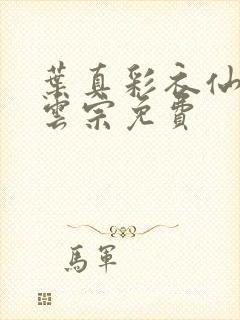 葉真彩衣仙
雲宗免費
馬軍